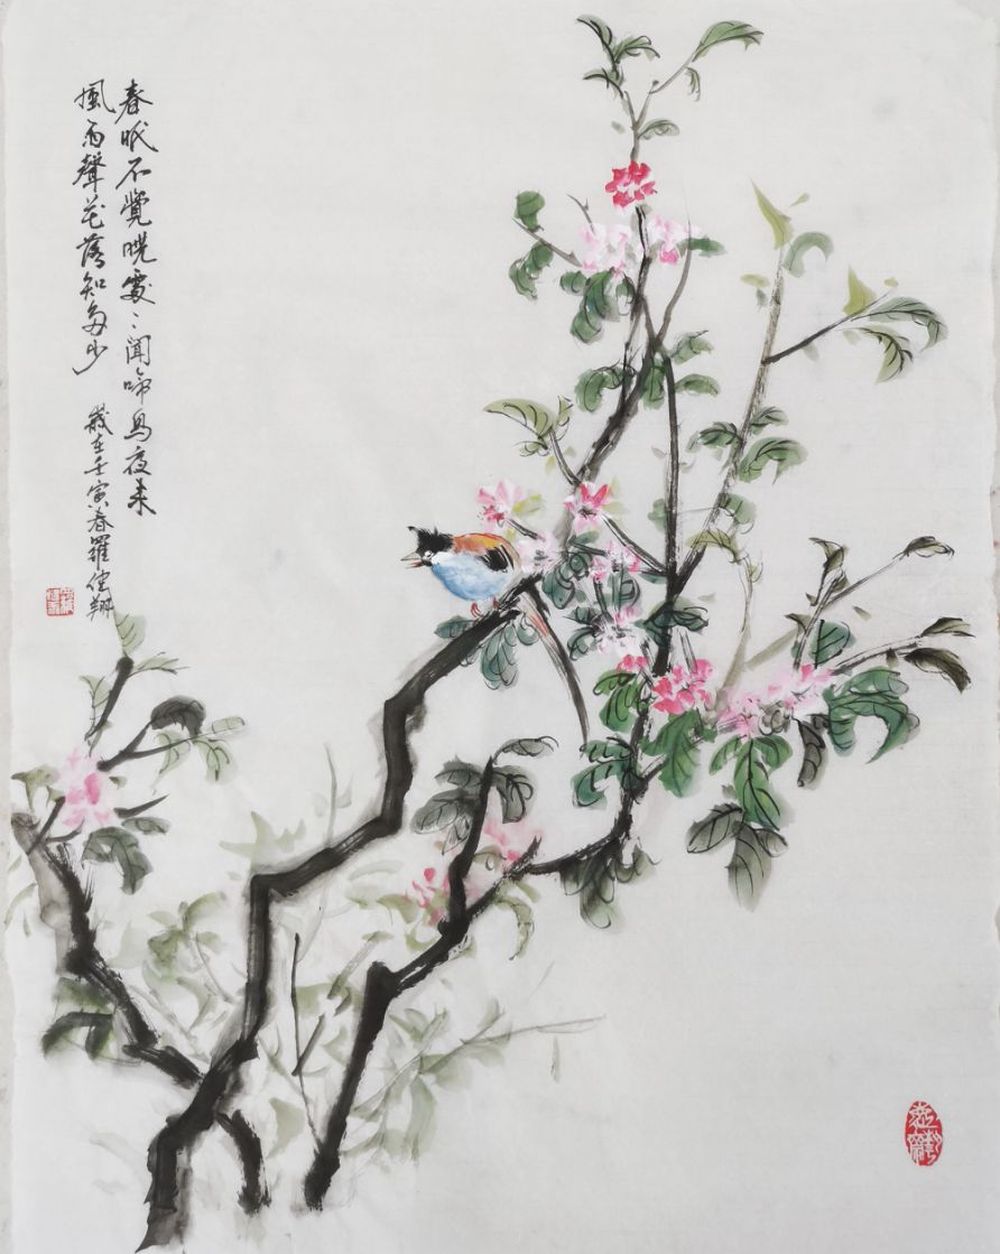 春眠不覺曉處〻聞啼鳥夜来
風雨聲花落知多少 歲在壬寅春羅健翔